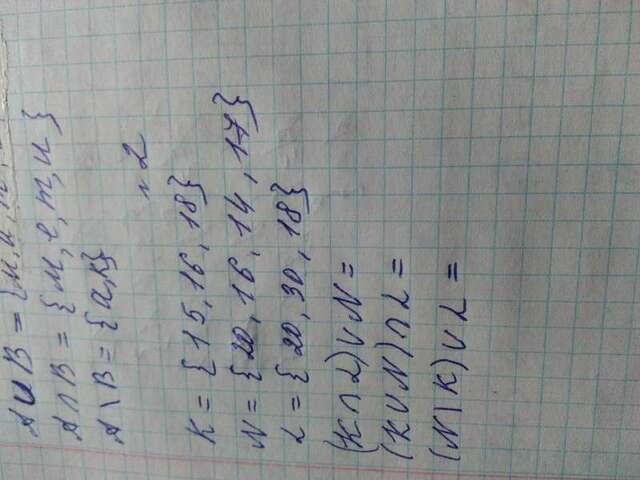 A ∪ B = {м, и, т,
A ∩ B = {м, е, т, и}
A \ B = {а, к}
№2
K = {15, 16, 18}
N = {20, 16, 14, 17}
L = {20, 30, 18}
(K ∩ L) ∪ N =
(K ∪ N) ∩ L =
(N \ K) ∪ L =